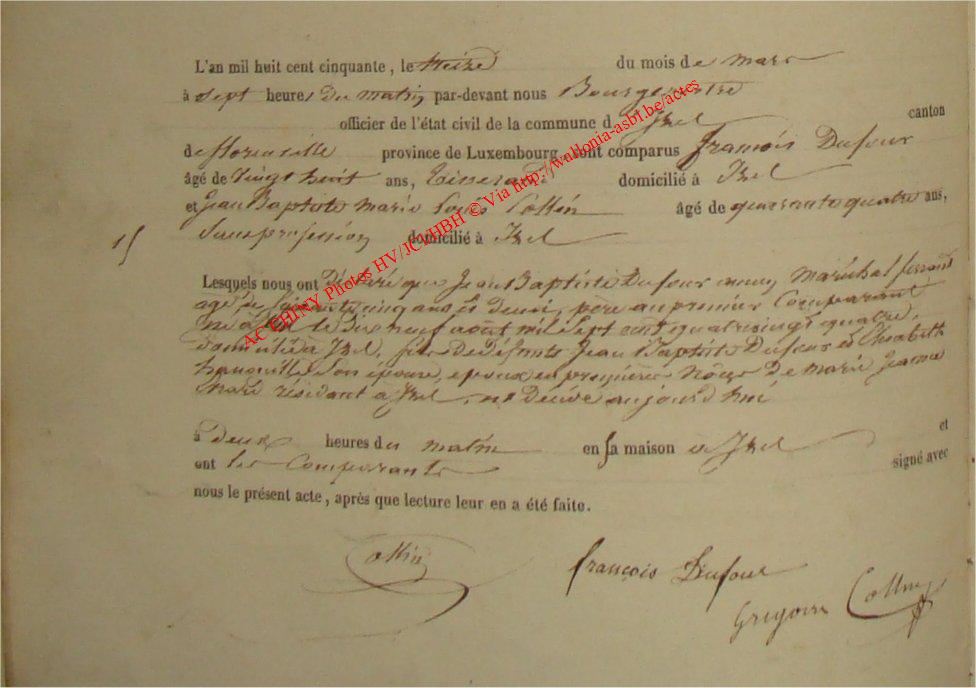 L'an mil huit cent cinquante, le treize du mois de mars
à sept heures du matin par-devant nous Bourgmestre
officier de l'état civil de la commune d'Izel canton
de florenville province de Luxembourg, sont comparus François Dufour
âgé de vingt huit ans, tisserand domicilié à Izel
et Jean Baptiste Marie Louis Collin âgé de quarante quatre ans,
15 Sans profession domicilié à Izel
Lesquels nous ont Déclaré que Jean Baptiste Dufour maréchal ferrant
agé de soixante cinq ans et demi, père au premier Comparant
né à Izel le Dix neuf août mil sept cent quatre vingt quatre,
domicilié à Izel, fils de Défunts Jean Baptiste Dufour et Elisabeth
son épouse, époux en premières Nôces De Marie Jeanne
résidant à Izel, est Décédé aujourd'hui
à Deux heures du matin en sa maison à Izel et
ont les Comparants signé avec
nous le présent acte, après que lecture leur en a été faite.
Collin
françois Dufour
Grégoire Collin
AC CHINY Photos HV/JCV/HBH © Via http://wallonia-asbl.be/actes